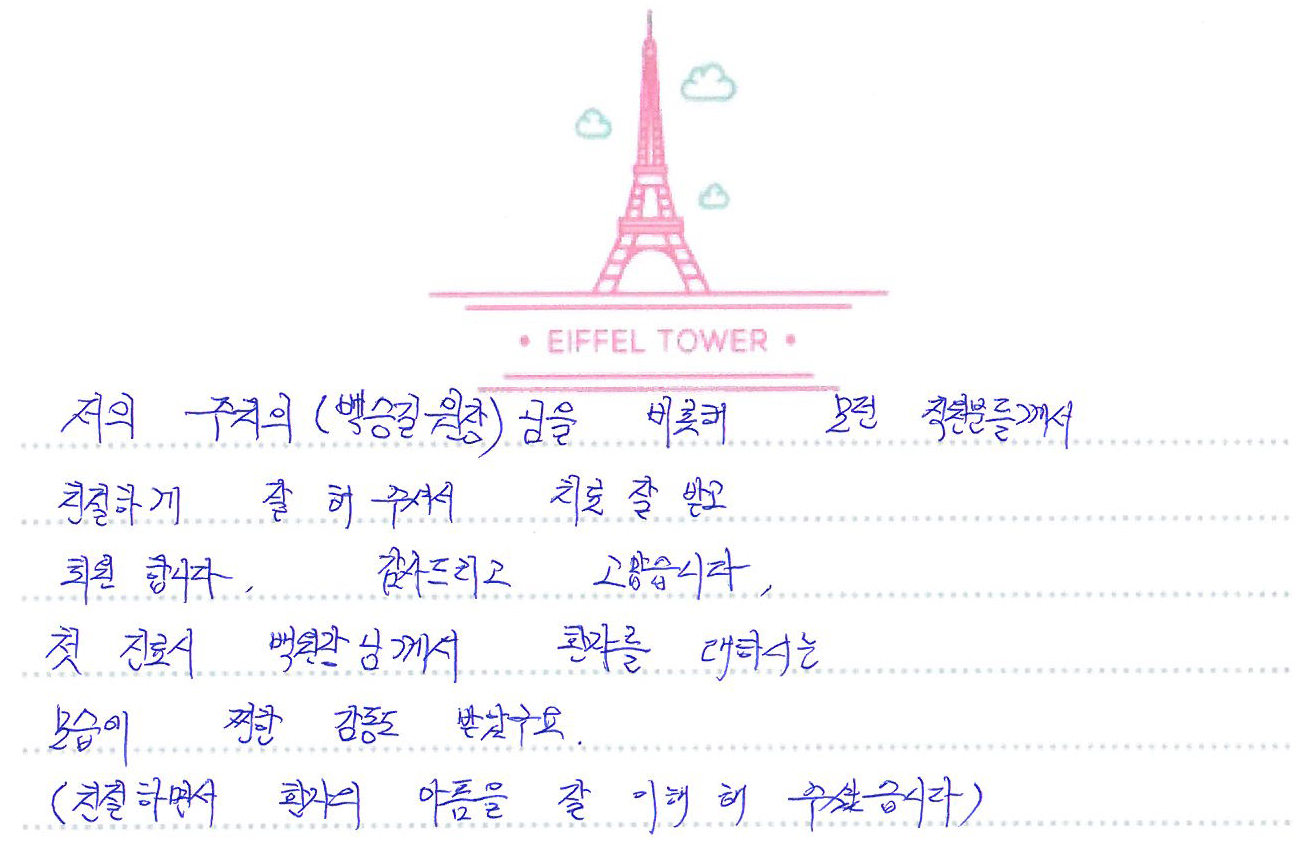 • EIFFEL TOWER •
저의 주치의 (백승길 원장) 님을 비롯해 모던 직원분들께서
친절하게 잘 해 주셔서 치료 잘 받고
퇴원 합니다. 감사드리고 고맙습니다,
첫 진료시 백원장님께서 환자를 대하시는
모습이 찐한 감동도 받았구요.
(친절하면서 환자의 아픔을 잘 이해 해 주십니다)